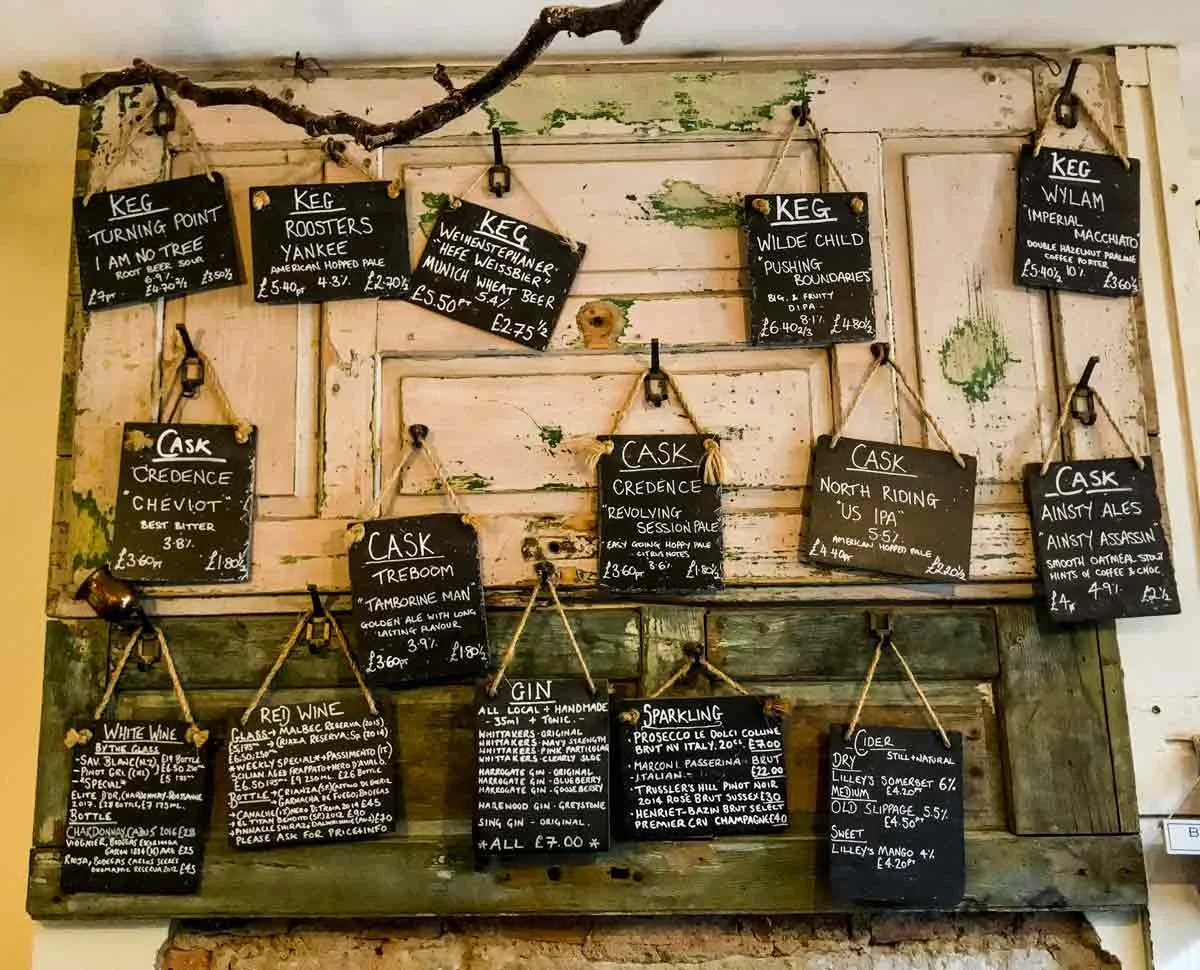 KEG
TURNING POINT
I AM NO TREE
ROOT BEER SOUR
6.9%
£7pt £4.70⅔ £3.50½
KEG
ROOSTERS
YANKEE
AMERICAN HOPPED PALE
£5.40pt 4.3% £2.70½
KEG
WEIHENSTEPHANER
"HEFE WEISSBIER"
MUNICH WHEAT BEER
5.4%
£5.50pt £2.75½
KEG
WILDE CHILD
"PUSHING
BOUNDARIES
BIG & FRUITY
DIPA
8.1%
£6.40⅔ £4.80½
KEG
WYLAM
"IMPERIAL
MACCHIATO"
DOUBLE HAZELNUT PRALINE
COFFEE PORTER
£5.40½ 10% £3.60⅓
CASK
CREDENCE
"CHEVIOT"
BEST BITTER
3.8%
£3.60pt £1.80½
CASK
TREBOOM
"TAMBORINE MAN"
GOLDEN ALE WITH LONG
LASTING FLAVOUR
3.9%
£3.60pt £1.80½
CASK
CREDENCE
"REVOLVING
SESSION PALE
EASY GOING HOPPY PALE
- CITRUS NOTES
3.6%
£3.60pt £1.80½
CASK
NORTH RIDING
"US IPA"
5.5%
AMERICAN HOPPED PALE
£4.40pt £2.20½
CASK
AINSTY ALES
"AINSTY ASSASSIN"
SMOOTH OATMEAL STOUT
HINTS OF COFFEE & CHOC
4.9%
£4pt £2½
WHITE WINE
BY THE GLASS
- SAV. BLANC (NZ)
- PINOT GRI.
- SPECIAL -
ELITE D'OR, CHARDONNAY-ROUSSANNE
2017. £28 BOTTLE, £7 175ML.
BOTTLE
CHARDONNAY, 2016 £28
VIOGNIER, BODEGAS
£25
RIOJA, BODEGAS
RESERVA 2012 £45
RED WINE
GLASS → MALBEC RESERVA (2015)
RIOJA RESERVA: SP (2014)
£6.50: 250ML
*WEEKLY SPECIAL* → PASSIMENTO (IT)
FRAPPATO + NERO D'AVALO
£6.50 175ML £9 250ML £26 BOTTLE
BOTTLE → CRIANZA (SP)
→ GARNACHA DE FUEGO, BODEGAS
£45
£90
PINNACLE SHIRAZ £70
PLEASE ASK FOR PRICE & INFO
GIN
ALL LOCAL + HANDMADE
- 35ml + TONIC. -
WHITTAKERS - ORIGINAL
WHITTAKERS - NAVY STRENGTH
WHITTAKERS - PINK PARTICULAR
WHITTAKERS - CLEARLY SLOE
HARROGATE GIN - ORIGINAL
HARROGATE GIN - BLUEBERRY
HARROGATE GIN - GOOSEBERRY
HAREWOOD GIN - GREYSTONE
SING GIN - ORIGINAL
*ALL £7.00*
SPARKLING
- PROSECCO LE DOLCI COLLINE
BRUT NV ITALY. 20CL £7.00
- MARCONI PASSERINA BRUT
- ITALIAN - £22.00
- TRUSSLER'S HILL PINOT NOIR
2014 ROSÉ BRUT SUSSEX £30
- HENRIET-BAZIN BRUT SELECT
PREMIER CRU CHAMPAGNE £40
CIDER
DRY STILL + NATURAL
LILLEY'S SOMERSET 6%
£4.20pt
MEDIUM
OLD SLIPPAGE 5.5%
£4.50pt
SWEET
LILLEY'S MANGO 4%
£4.20pt